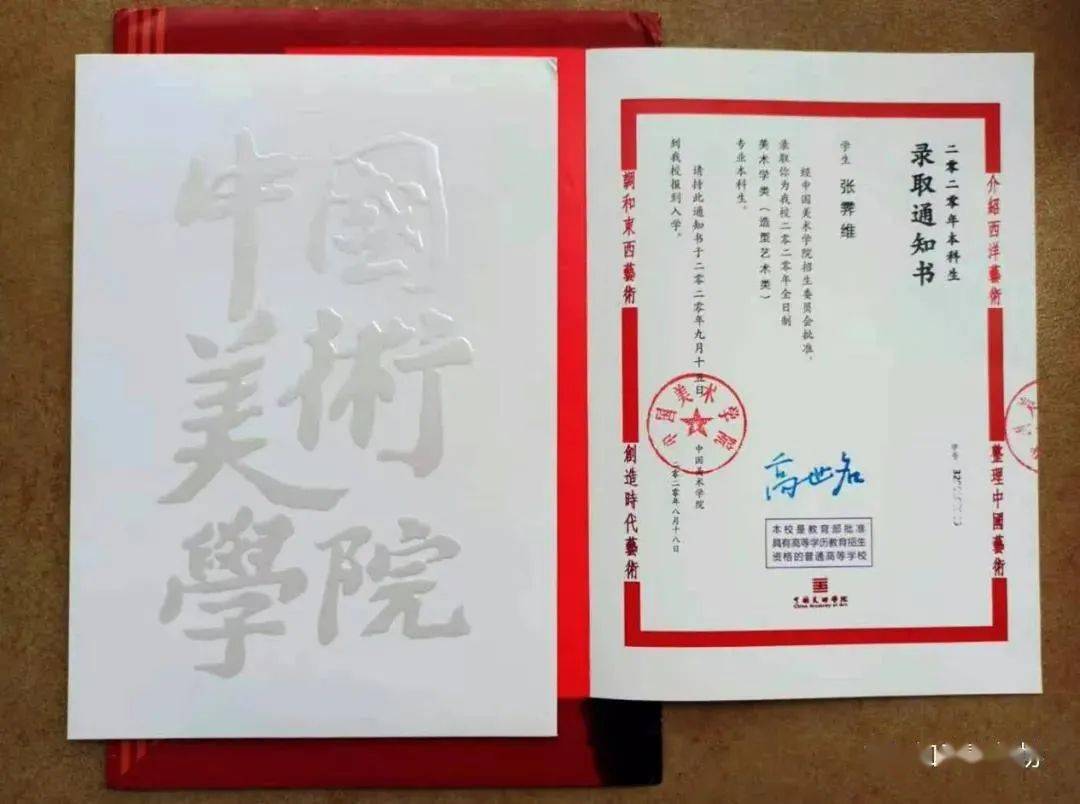 中國
美術
學院
二零二零年本科生
录取通知书
学生 张霁维
经中国美术学院招生委员会批准，
录取你为我校二零二零年全日制
美术学类（造型艺术类）
专业本科生。
请持此通知书于二零二零年九月十五日
到我校报到入学。
中国美术学院
二零二零年八月十八日
中国美术学院
高世名
学号
本校是教育部批准
具有高等学历教育招生
资格的普通高等学校
中国美术学院
China Academy of Art
介紹西洋藝術
整理中國藝術
調和東西藝術
創造時代藝術